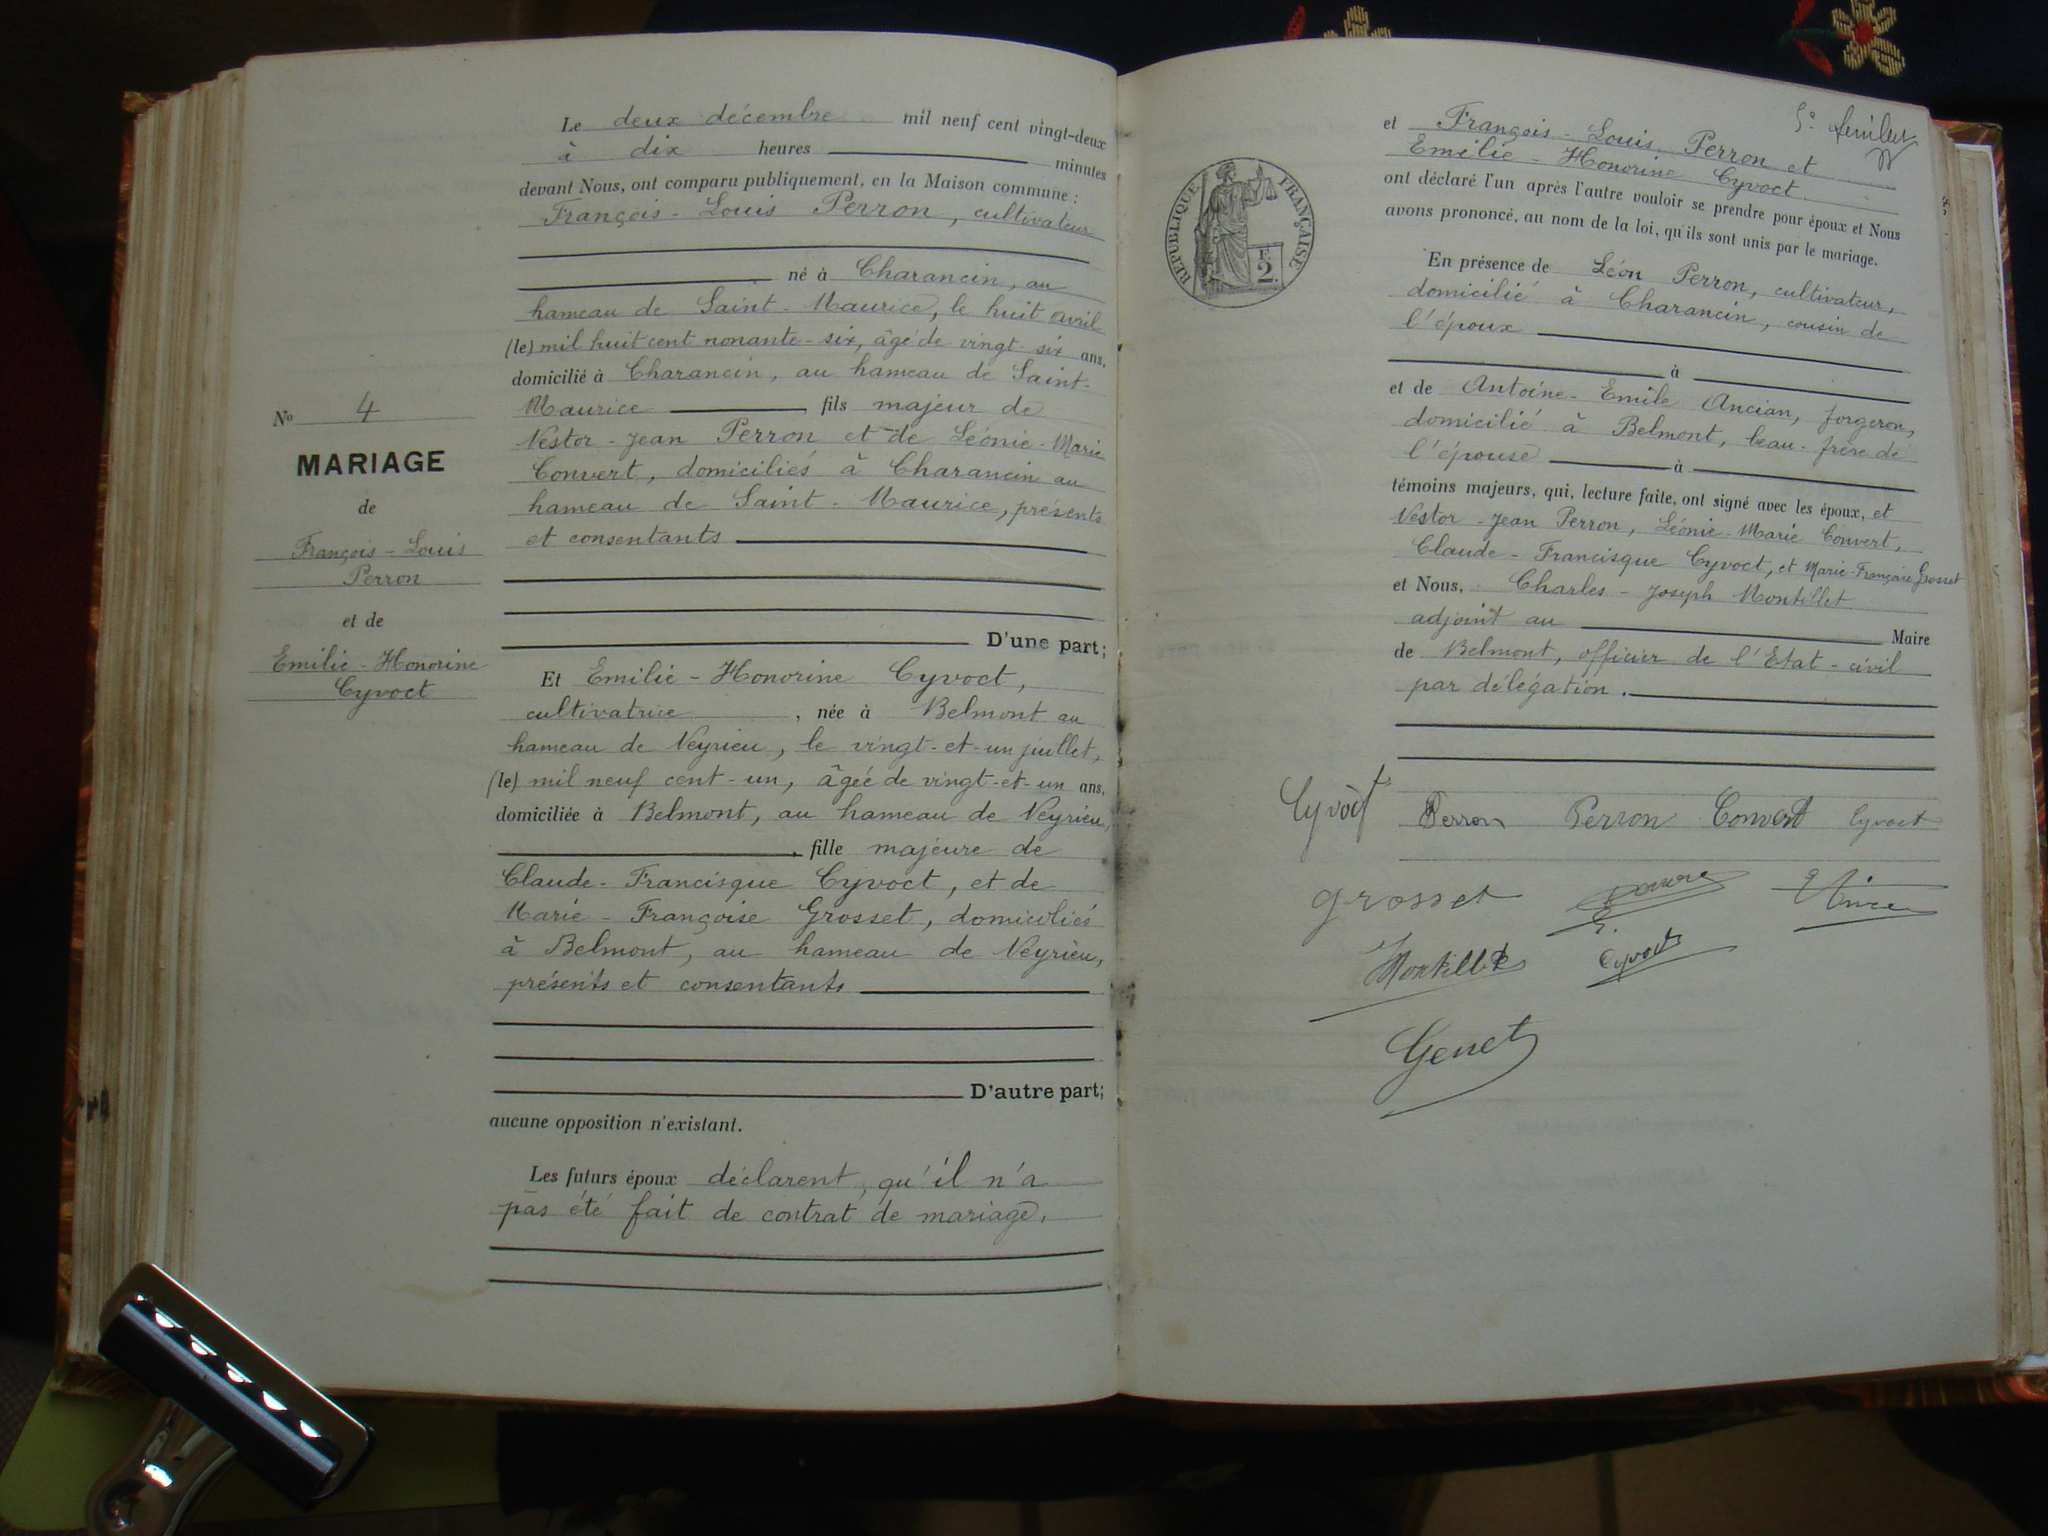 N° 4
MARIAGE
de
François-Louis
Perron
et de
Emilie-Honorine
Cyvoct
Le deux décembre mil neuf cent vingt-deux
à dix heures minutes
devant Nous, ont comparu publiquement, en la Maison commune :
François-Louis Perron, cultivateur
né à Charancin, au
hameau de Saint-Maurice, le huit avril
(le) mil huit cent nonante-six, âgé de vingt-six ans,
domicilié à Charancin, au hameau de Saint-
Maurice fils majeur de
Nestor-Jean Perron et de Léonie-Marie
Convert, domiciliés à Charancin au
hameau de Saint-Maurice, présents
et consentants
D'une part;
Et Emilie-Honorine Cyvoct,
cultivatrice, née à Belmont au
hameau de Neyrieu, le vingt-et-un juillet,
(le) mil neuf cent-un, âgée de vingt-et-un ans,
domiciliée à Belmont, au hameau de Neyrieu,
, fille majeure de
Claude-Francisque Cyvoct, et de
Marie-Françoise Grosset, domiciliés
à Belmont, au hameau de Neyrieu,
présents et consentants
D'autre part;
aucune opposition n'existant.
Les futurs époux déclarent, qu'il n'a
pas été fait de contrat de mariage.
RÉPUBLIQUE FRANÇAISE
F.
2.
et François-Louis Perron et
Emilie-Honorine Cyvoct
ont déclaré l'un après l'autre vouloir se prendre pour époux et Nous
avons prononcé, au nom de la loi, qu'ils sont unis par le mariage.
En présence de Léon Perron, cultivateur,
domicilié à Charancin, cousin de
l'époux
à
et de Antoine-Emile Ancian, forgeron,
domicilié à Belmont, beau-frère de
l'épouse à
témoins majeurs, qui, lecture faite, ont signé avec les époux, et
Nestor-Jean Perron, Léonie-Marie Convert,
Claude-Francisque Cyvoct, et Marie-Françoise Grosset
et Nous, Charles-Joseph Montillet
adjoint au Maire
de Belmont, officier de l'Etat-civil
par délégation.
Cyvoct Perron Perron Convert Cyvoct
grosset
Montillet Cyvoct
Genet